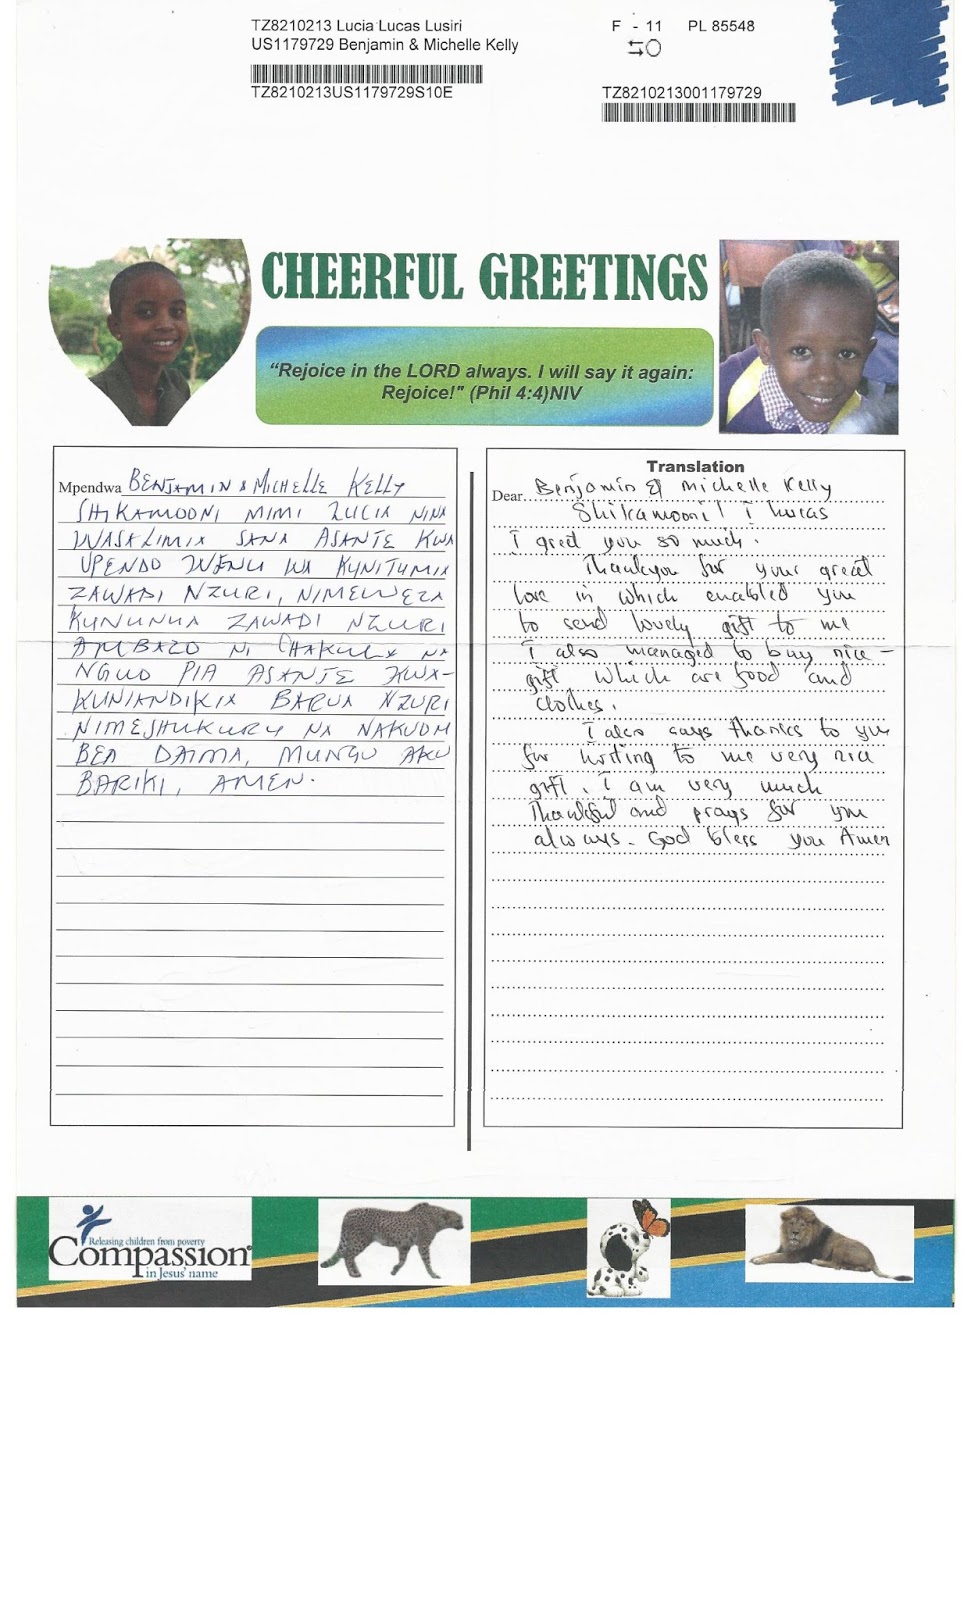 TZ8210213 Lucia Lucas Lusiri
US1179729 Benjamin & Michelle Kelly
F - 11 PL 85548
TZ8210213US1179729S10E
TZ8210213001179729
CHEERFUL GREETINGS
“Rejoice in the LORD always. I will say it again:
Rejoice!" (Phil 4:4)NIV
Mpendwa BENJAMIN & MICHELLE KELLY
SHIKAMOONI MIMI LUCIA NINA
WASALIMIA SANA ASANTE KWA
UPENDO WENU WA KUNITUMIA
ZAWADI NZURI, NIMEWEZA
KUNUNUA ZAWADI NZURI
AMBAZO NI CHAKULA NA
NGUO PIA ASANTE KWA-
KUNIANDIKIA BARUA NZURI
NIMESHUKURU NA NAKUOM
BEA DAIMA, MUNGU AKU
BARIKI, AMEN.
Translation
Dear Benjamin & Michelle Kelly
Shikamooni! I Lucas
I greet you so much.
Thankyou for your great
love in which enabled you
to send lovely gift to me
I also managed to buy nice-
gift which are food and
clothes.
I also says thanks to you
for writing to me very nice
gift. I am very much
thankful and prays for you
always. God bless you Amen
Releasing children from poverty
Compassion®
in Jesus' name